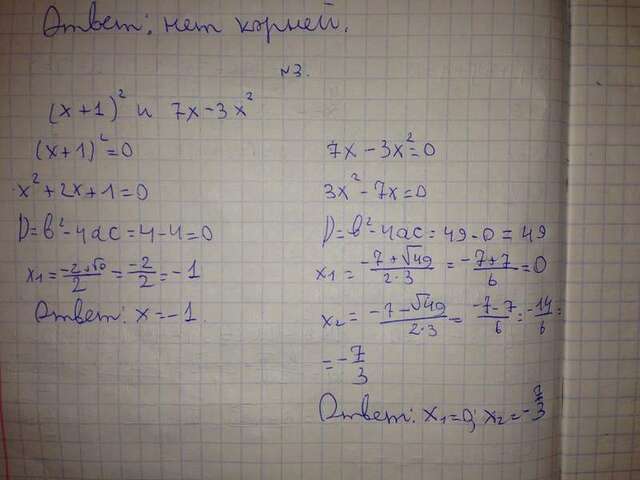 Ответ: нет корней.
№3.
(x+1)² и 7x-3x²
(x+1)²=0
x²+2x+1=0
D=b²-4ac=4-4=0
x₁=(-2+√0)/2=-2/2=-1
Ответ: x=-1.
7x-3x²=0
3x²-7x=0
D=b²-4ac=49-0=49
x₁=(-7+√49)/(2·3)=(-7+7)/6=0
x₂=(-7-√49)/(2·3)=(-7-7)/6=-14/6=
=-7/3
Ответ: x₁=0; x₂=-7/3